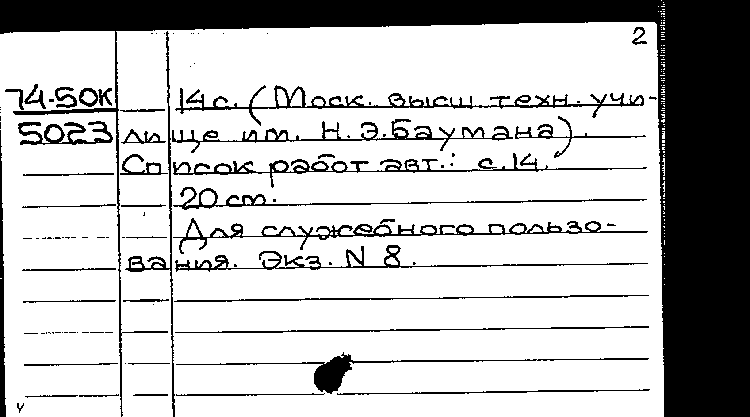 2
74-50К 14 с. (Моск. высш. техн. учи-
5023 лище им. Н.Э.Баумана).
Список работ авт.: с.14.
20 см.
Для служебного пользо-
вания. Экз. N 8.